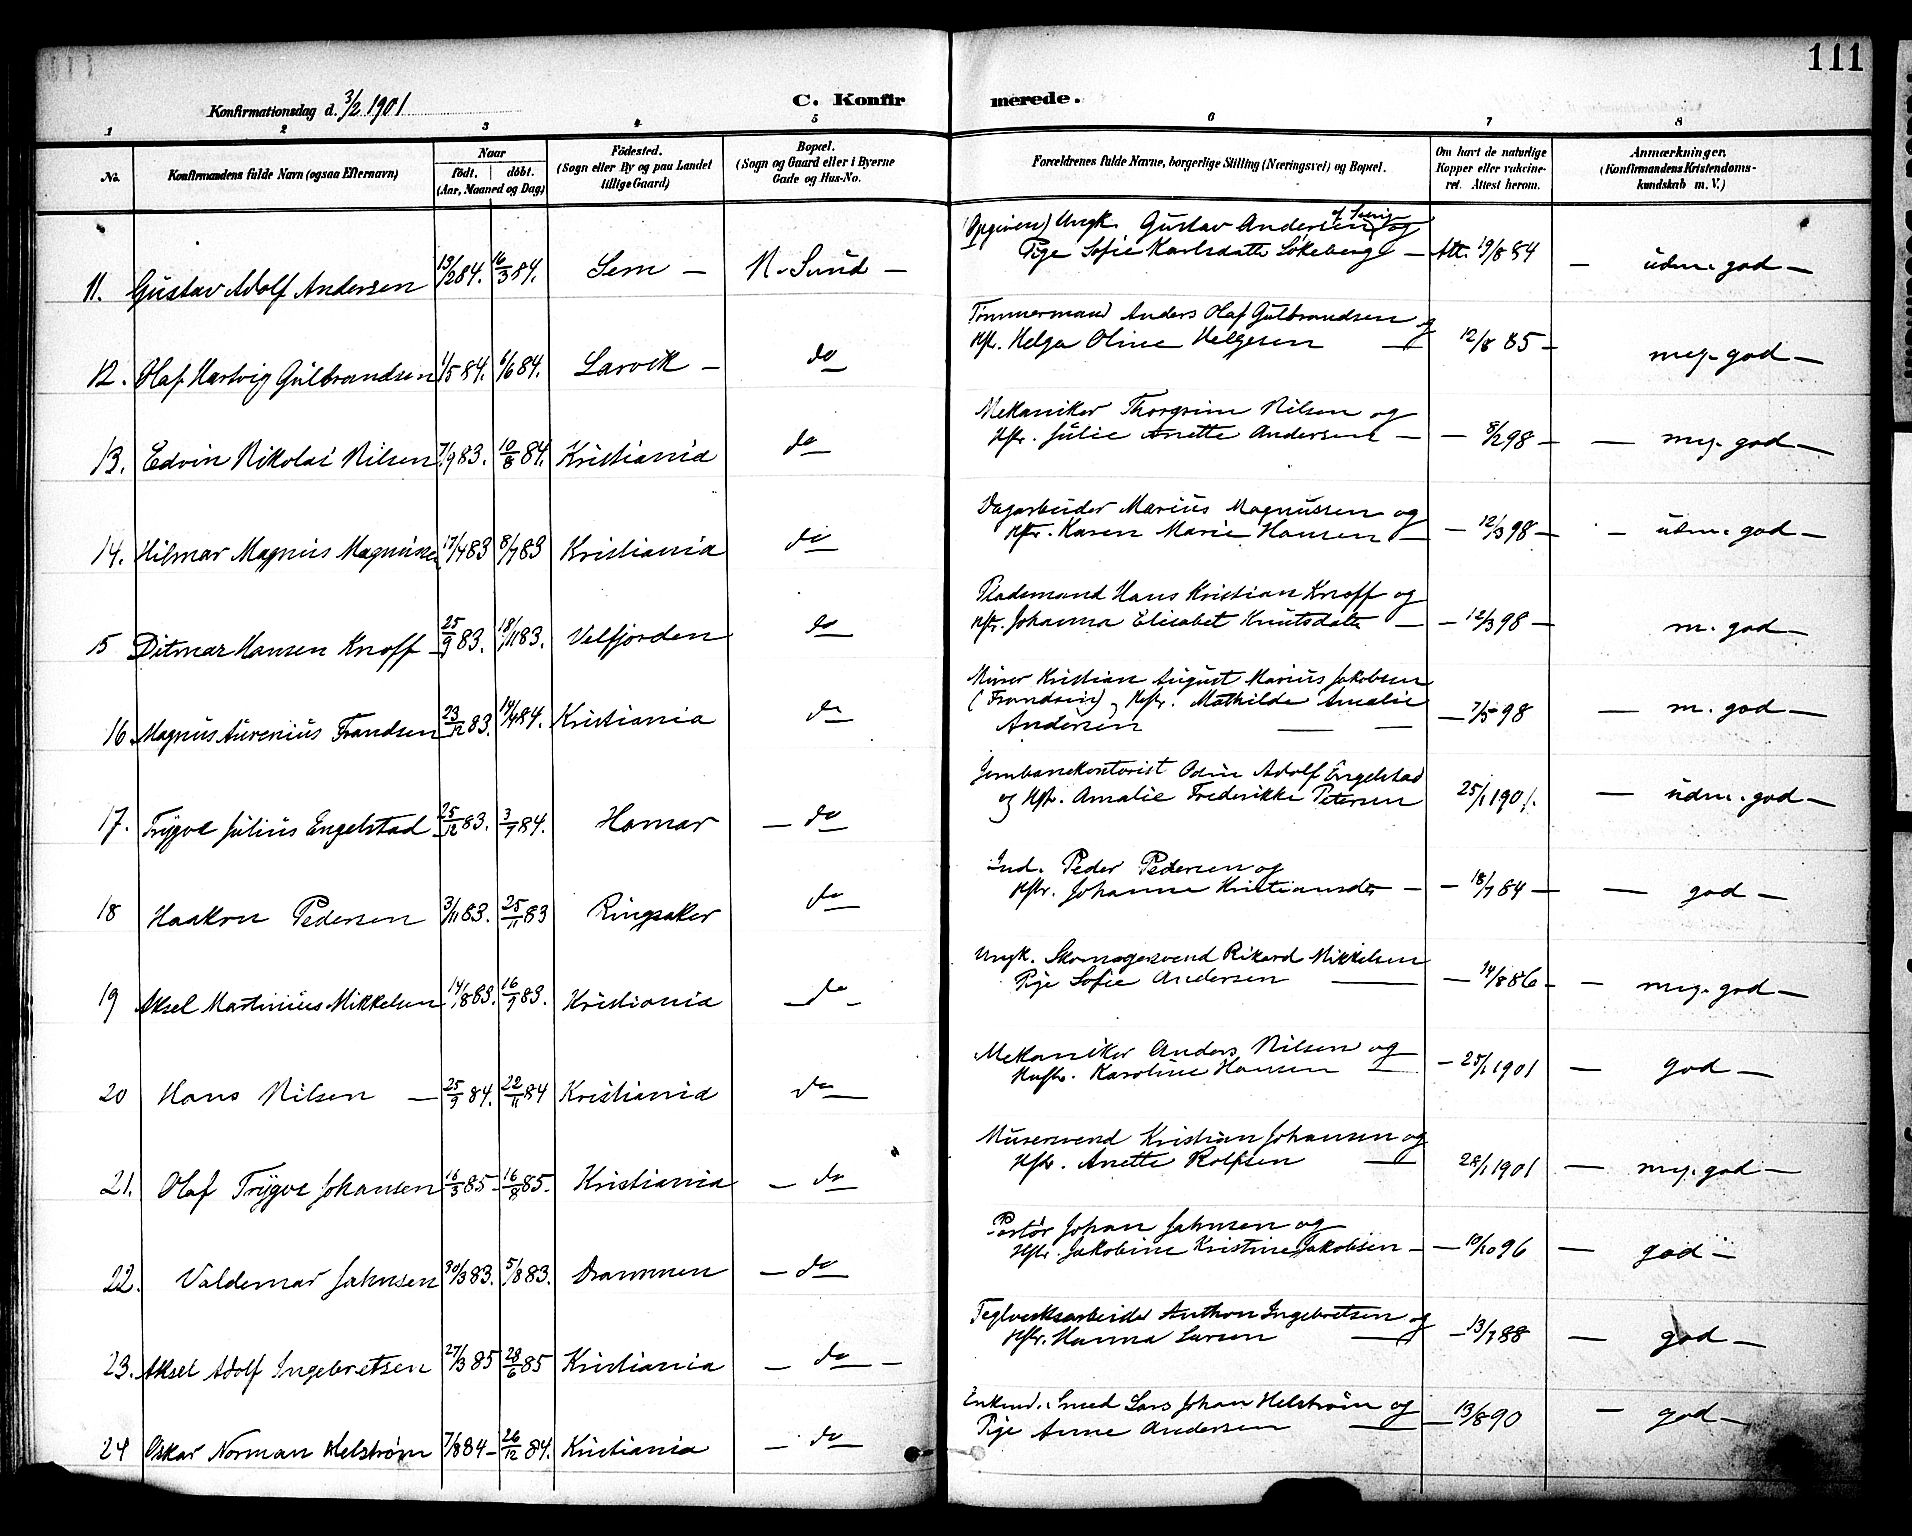 111
Konfirmationsdag d. 3/2 1901
C. Konfirmerede.
1 2 3 4 5 6 7 8
No. | Konfirmandens fulde Navn (ogsaa Efternavn) | Naar født. døbt. (Aar, Maaned og Dag) | Fødested. (Sogn eller By og paa Landet tillige Gaard) | Bopæl. (Sogn og Gaard eller i Byerne Gade og Hus-No. | Forældrenes fulde Navne, borgerlige Stilling (Næringsvei) og Bopæl. | Om havt de naturlige Kopper eller vakcineret. Attest herom. | Anmærkninger. (Konfirmandens Kristendomskundskab m. V.)
11. Gustav Adolf Andersen 13/2 84. 16/3 84. Sem — N. Sund — (Opgiven) Ungk. Gustav Andersen og
Pige Sofie Karlsdatte Løkeberg — Att. 19/8 84 — udm. god —
12. Olaf Hartvig Gulbrandsen 1/5 84. 6/6 84. Larvik — do Tømmermand Anders Olaf Gulbrandsen og
Hst. Helga Oline Helgesen — 12/8 85 — meg. god —
13. Edvin Nikolai Nilsen 7/9 83. 10/8 84. Kristiania do Mekaniker Thorgrim Nilsen og
Hstr. Julie Anette Andersen — — 8/2 98 — — meg. god —
14. Hilmar Magnus Magnussen 17/4 83 8/7 83 Kristiania do Dagarbeider Marius Magnussen og
Hstr. Karen Marie Hansen — — 12/3 98 — — udm. god —
15 Ditmar Hansen Knoff — 25/9 83. 18/11 83. Velfjorden do Pladsmand Hans Kristian Knoff og
Hstr. Johanna Elisabet Knutsdatte — — 12/3 98 — m. god —
16 Magnus Aurenius Frandsen 23/12 83. 14/4 84. Kristiania do Murer Kristian August Marius Jakobsen
(Frandsen) og Hstr. Mathilde Amalie
Andersen — — — 7/5 98 — m. god —
17. Trygve Julius Engelstad 25/12 83. 3/7 84. Hamar — do Jernbanekontorist Odin Adolf Engelstad
og Hstr. Amalie Frederikke Petersen 25/1 1901. — udm. god —
18 Haakon Pedersen 3/11 83. 25/11 83 Ringsaker do Ind. Peder Pedersen og
Hstr. Johanne Kristiansdtr — — 18/7 84 — — god —
19 Aksel Martinius Mikkelsen 14/8 83. 16/9 83. Kristiania — do Ungk. Skomagersvend Rikard Mikkelsen
Pige Sofie Andersen — — 14/8 86 — — meg. god —
20 Hans Nilsen — 25/9 84. 22/11 84 Kristiania do Mekaniker Anders Nilsen og
Hustr. Karoline Hansen — — 25/1 1901 — god —
21. Olaf Trygve Johansen 16/3 85 — 16/8 85. Kristiania — do Murersvend Kristian Johansen og
Hstr. Anette Rolfsen — 28/1 1901 — meg. god —
22. Valdemar Jahnsen 30/3 83. 5/8 83. Drammen — do Portør Johan Jahnsen og
Hstr. Jakobine Kristine Jakobsen — — 10/10 96 — god —
23. Aksel Adolf Ingebretsen 27/3 85 28/6 85 Kristiania — do — Teglverksarbeider Anthon Ingebretsen og
Hstr. Hanna Larsen — — 13/7 88 — god —
24 Oskar Norman Helstrøm 7/8 84 — 26/12 84. Kristiania — do Enkem. Smed Lars Johan Helstrøm og
Pige Anne Andersen — — 13/8 90 — god —